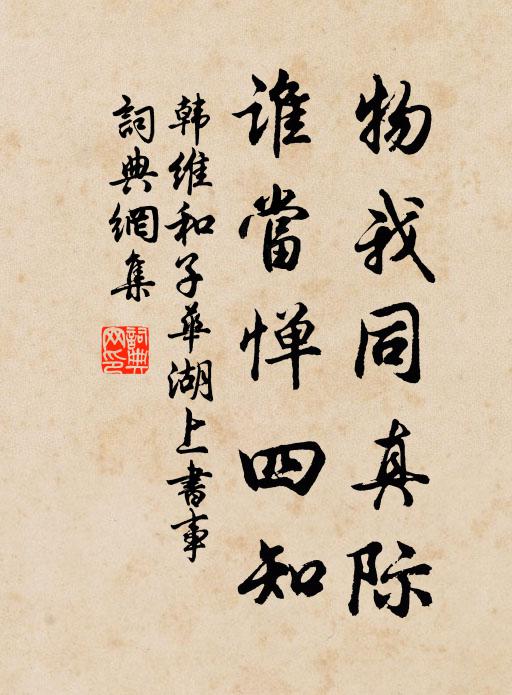 物我同真际
谁當惮四知
韩维和子華湖上書事
詞典網集
詞典网印